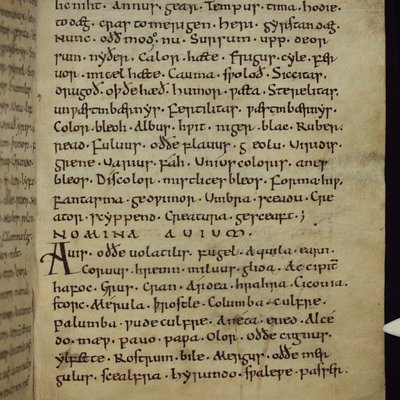 lic niht. Annus. gear. Tempus. tima. hodie.
todæg. cras. tomerigen. heri. gyrstandæg.
Nunc. oððe modo. nu. Sursum. upp. deor
sum. nyðer. Calor. hæte. Frigus. cyle. Fer
vor. micel hæte. Cauma. sƿoloð. Siccitas.
drugoð. oþðe hæð. humor. ƿæta. Sterelitas.
unƿæstmbærnys. Fertilitas. ƿæstmbærnys.
Color. bleoh. Albus. hƿit. niger. blac. Ruber.
read. Fuluus. oððe flauus. geolu. Viridis.
grene. Uarius. fah. Unius coloris. anes
bleos. Discolor. mislices bleos. Forma. hiƿ.
Fantasma. gedƿimor. Umbra. sceadu. Cre
ator. scyppend. Creatura. gesceaft;
NOMINA AVIUM.
Auis. oððe uolatilis. fugel. Aquila. earn.
Coruus. hremn. miluus. glida. Accipit̄
hafoc. Grus. Cran. Ardea. hragra. Ciconia.
storc. Merula. þrostle. Columba. culfre.
palumba. ƿudeculfre. Aneta. ened. Alce
do. mæƿ. pauo. paƿa. Olor. oððe cignus.
ylfette. Rostrum. bile. Mergus. oððe mer
gulus. scealfra. hyrundo. sƿaleƿe. passer.